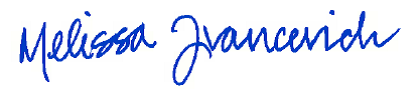 Melissa Ivancevich